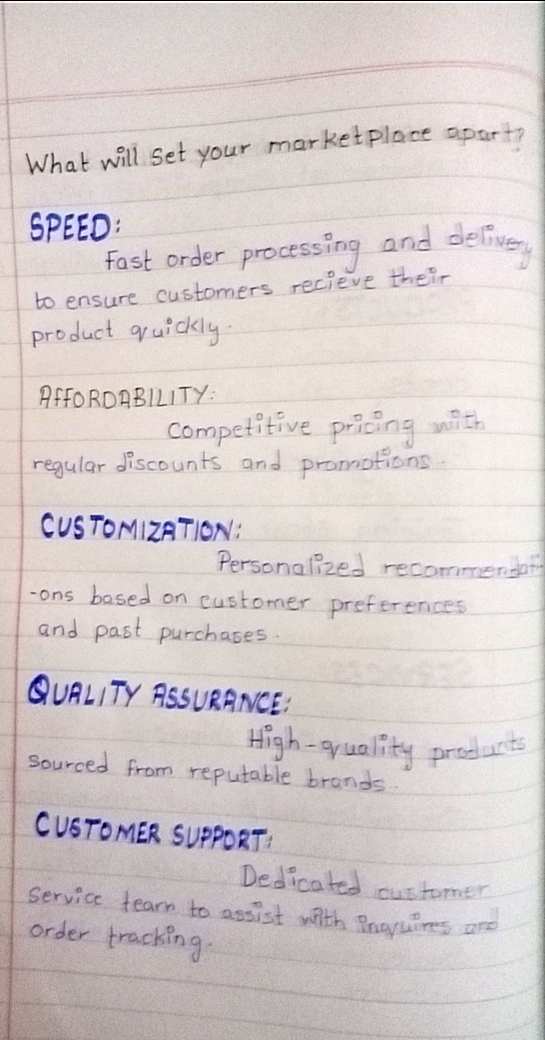 What will set your marketplace apart?
SPEED:
Fast order processing and delivery
to ensure customers recieve their
product quickly.
AFFORDABILITY:
Competitive pricing with
regular discounts and promotions.
CUSTOMIZATION:
Personalized recommendati
-ons based on customer preferences
and past purchases.
QUALITY ASSURANCE:
High-quality products
sourced from reputable brands.
CUSTOMER SUPPORT:
Dedicated customer
service team to assist with inquires and
order tracking.